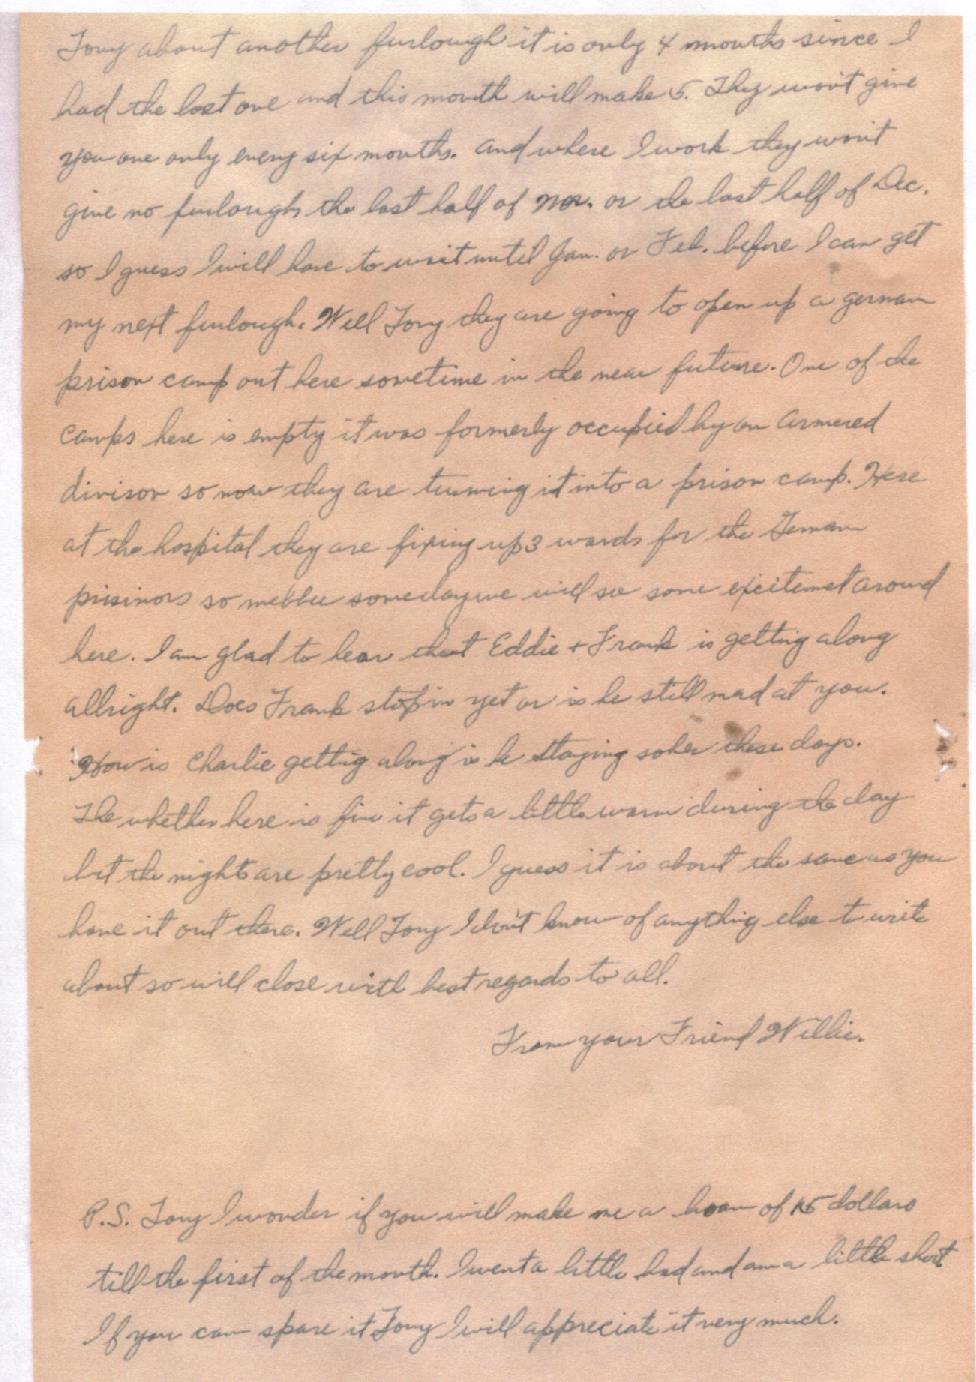 Tony about another furlough it is only 4 months since I
had the last one and this month will make 5. They won't give
you one only every six months. and where I work they won't
give no furloughs the last half of Nov. or the last half of Dec.
so I guess I will have to wait until Jan. or Feb. before I can get
my next furlough. Well Tony they are going to open up a german
prison camp out here sometime in the near future. One of the
camps here is empty it was formerly occupied by an armered
divison so now they are turning it into a prison camp. Here
at the hospital they are fixing up 3 wards for the German
prisinors so mebbe someday we will see some excitemet around
here. I am glad to hear that Eddie + Frank is getting along
allright. Does Frank stop in yet or is he still mad at you.
How is Charlie gettig along is he staying sober these days.
The whether here is fine it gets a little warm during the day
but the nights are pretty cool. I guess it is about the same as you
have it out there. Well Tony I don't know of anything else to write
about so will close with best regards to all.
From your Friend Willie.
P.S. Tony I wonder if you will make me a loan of 15 dollars
till the first of the month. I went a little bad and am a little short
If you can spare it Tony I will appreciate it very much.